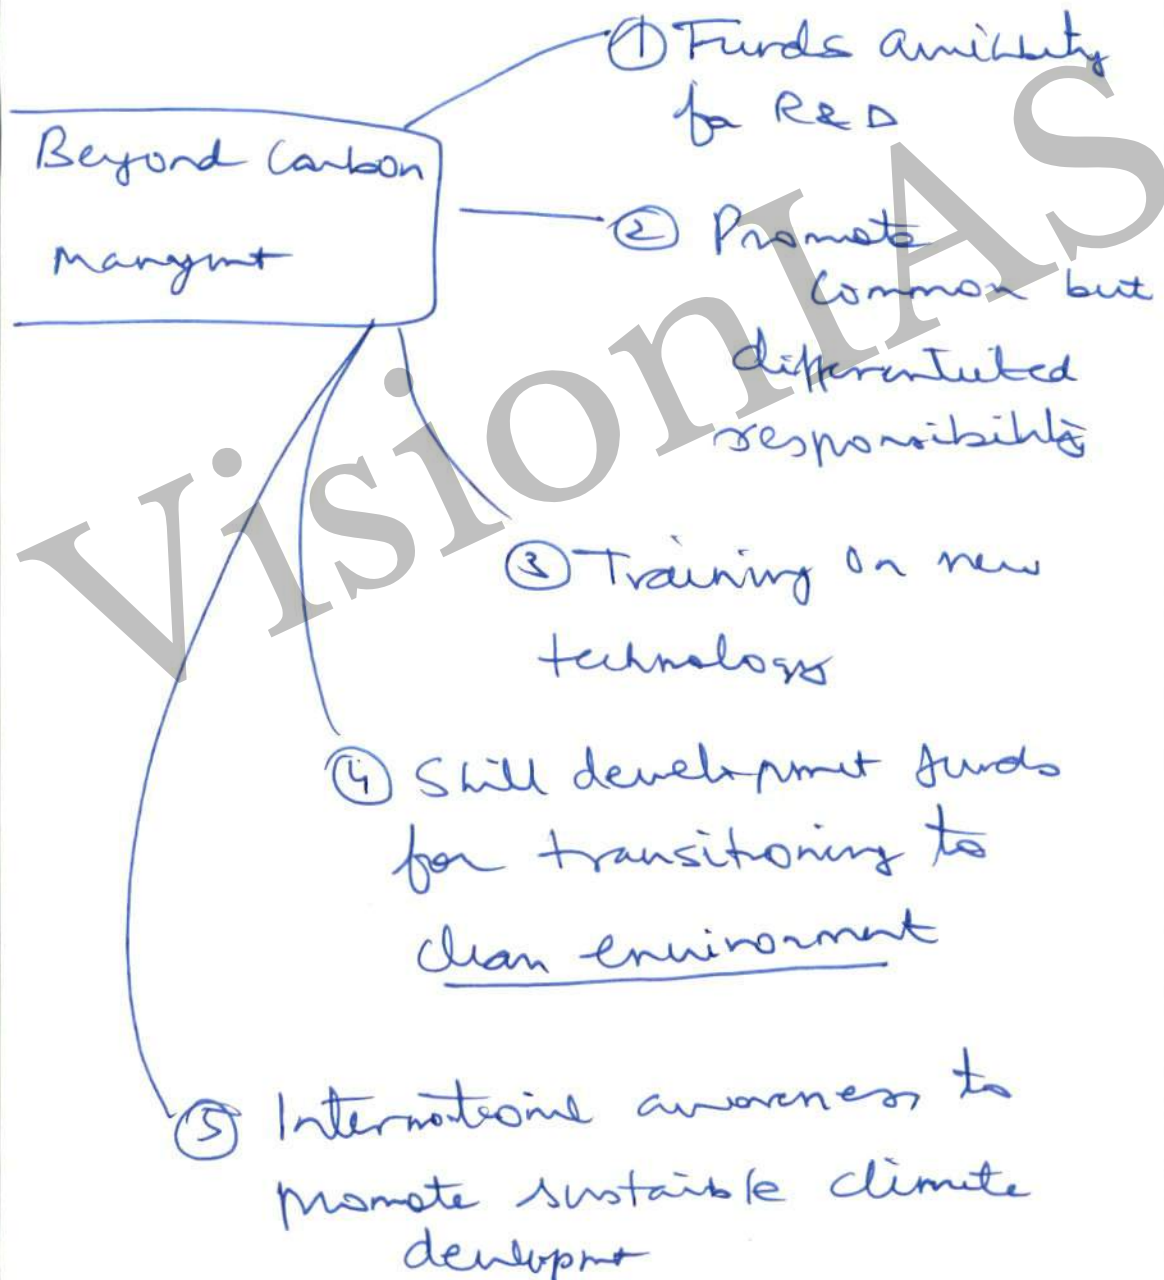 Beyond Carbon
Mangmt
① Funds availability
for R&D
② Promote
common but
differentiated
responsibility
③ Training on new
technology
④ Skill development funds
for transitioning to
clean environment
⑤ International awareness to
promote sustaible climate
develpmt
VisionIAS